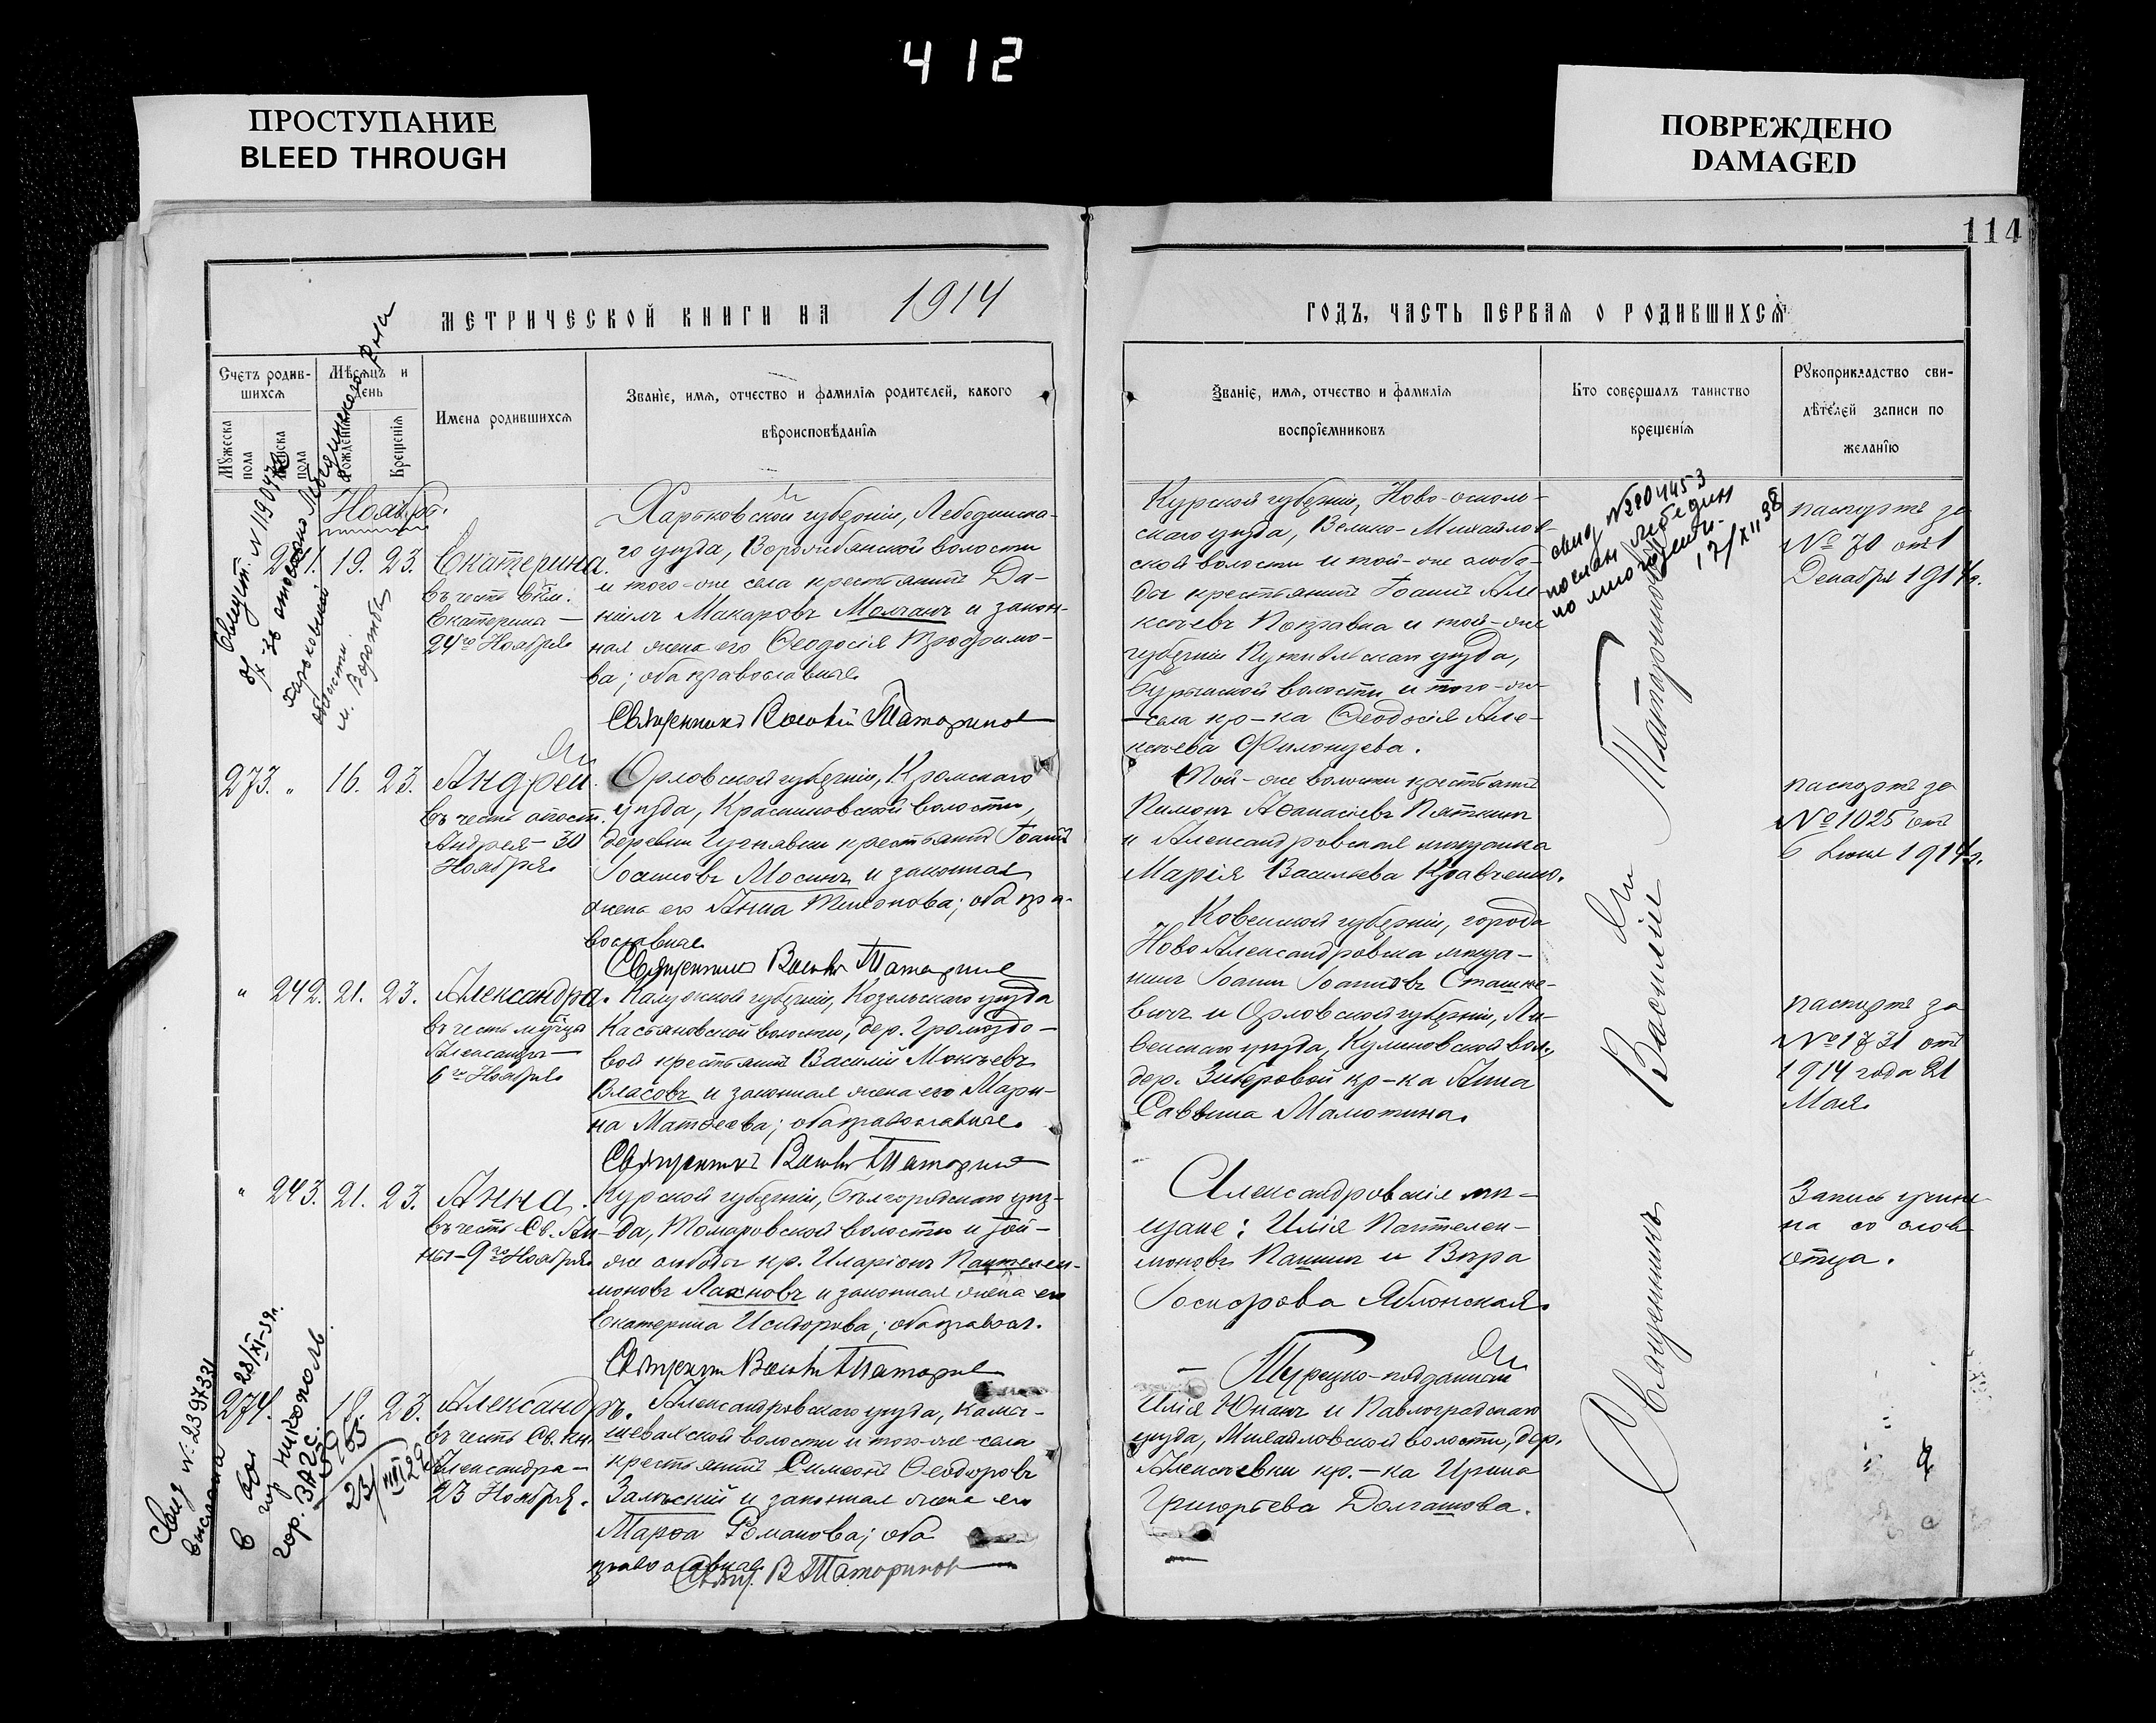 412
ПРОСТУПАНИЕ
BLEED THROUGH
ПОВРЕЖДЕНО
DAMAGED
114
МЕТРИЧЕСКОЙ КНИГИ НА 1914
ГОДЪ, ЧАСТЬ ПЕРВАЯ О РОДИВШИХСЯ
Счетъ родив-
шихся
Мужеска
пола
Женска
пола
Мѣсяцъ и
день
Рожденія
Крещенія
Имена родившихся
Званіе, имя, отчество и фамилія родителей, какого
вѣроисповѣданія
Званіе, имя, отчество и фамилія
воспріемниковъ
Кто совершалъ таинство
крещенія
Рукоприкладство сви-
дѣтелей записи по
желанію
Ноябрь.
241. 19. 23. Екатерина.
въ честь Вкм.
Екатерины —
24го Ноября
Харьковской губерніи, Лебединска-
го уѣзда, Ворожбянской волости
и того-же села крестьянинъ Да-
ніилъ Макаровъ Молчанъ и закон-
ная жена его Ѳеодосія Трофимо-
ва; оба православные.
Священникъ Василій Татариновъ
Курской губерніи, Ново-осколь-
скаго уѣзда, Велико-Михайлов-
ской волости и той-же слобо-
ды крестьянинъ Іоаннъ Але-
ксѣевъ и той-же
губерніи Путивльскаго уѣзда,
Бурынской волости и того-же
села кр-ка Ѳеодосія Але-
ксѣева Филонцева.
паспортъ за
№ 70 отъ 1
Декабря 1914 г.
273. " 16. 23. Андрей.
въ честь апост.
Андрея - 30
Ноября
Орловской губерніи, Кромскаго
уѣзда, волости,
деревни крестьянинъ Іоаннъ
Іоанновъ Мосинъ и законная
жена его Анна Тихонова; оба пра-
вославные.
Священникъ Василій Татариновъ
Той-же волости крестьянинъ
Пименъ Аѳанасіевъ Пяткинъ
и Александровская мѣщанка
Марія Васильева Кравченко.
паспортъ за
№ 1025 отъ
6 Іюня 1914 г.
" 242. 21. 23. Александра.
въ честь мучцы
Александры —
6го Ноября
Калужской губерніи, Козельскаго уѣзда
Касьяновской волости, дер. Громоздо-
вой крестьянинъ Василій Мокѣевъ
Власовъ и законная жена его Мари-
на Матѳеева; оба православные.
Священникъ Василій Татариновъ
Ковенской губерніи, города
Ново Александровска мѣща-
нинъ Іоаннъ Іоанновъ Сташке-
вичъ и Орловской губерніи, Ли-
венскаго уѣзда, Кулиновской вол.,
дер. Зиберовой кр-ка Анна
Саввина Малютина.
паспортъ за
№ 1731 отъ
1914 года 21
Мая.
" 243. 21. 23. Анна.
въ честь Св. Ан-
ны - 9го Ноября
Курской губерніи, Бѣлгородскаго уѣз-
да, Томаровской волости и той-
же слободы кр. Иларіонъ Пантелеи-
моновъ Лахновъ и законная жена его
Екатерина Исидорова; оба правосл.
Священникъ Василій Татариновъ
Александровскіе мѣ-
щане: Илія Пантелеи-
моновъ Пашинъ и Вѣра
Исидорова Яблонская.
Запись учине-
на со словъ
отца.
274. 18. 23. Александръ.
въ честь Св. Кн.
Александра —
23 Ноября.
Александровскаго уѣзда, Камы-
шевахской волости и того-же села
крестьянинъ Симеонъ Ѳеодоровъ
Залѣскій и законная жена его
Марѳа Романова; оба
православные.
Свящ. В. Татариновъ
Турецко-подданный
Илія Юнанъ и Павлоградскаго
уѣзда, Михайловской волости, дер.
Алексѣевки кр.-ка Ирина
Григорьева Долгашова.
Священникъ Василій Татариновъ
свид № 2204453
послан Лебедин
17/XII 38
Свид № 2397331
выслано
28/XI-39г.
в гор Никополь
гор. ЗАГС